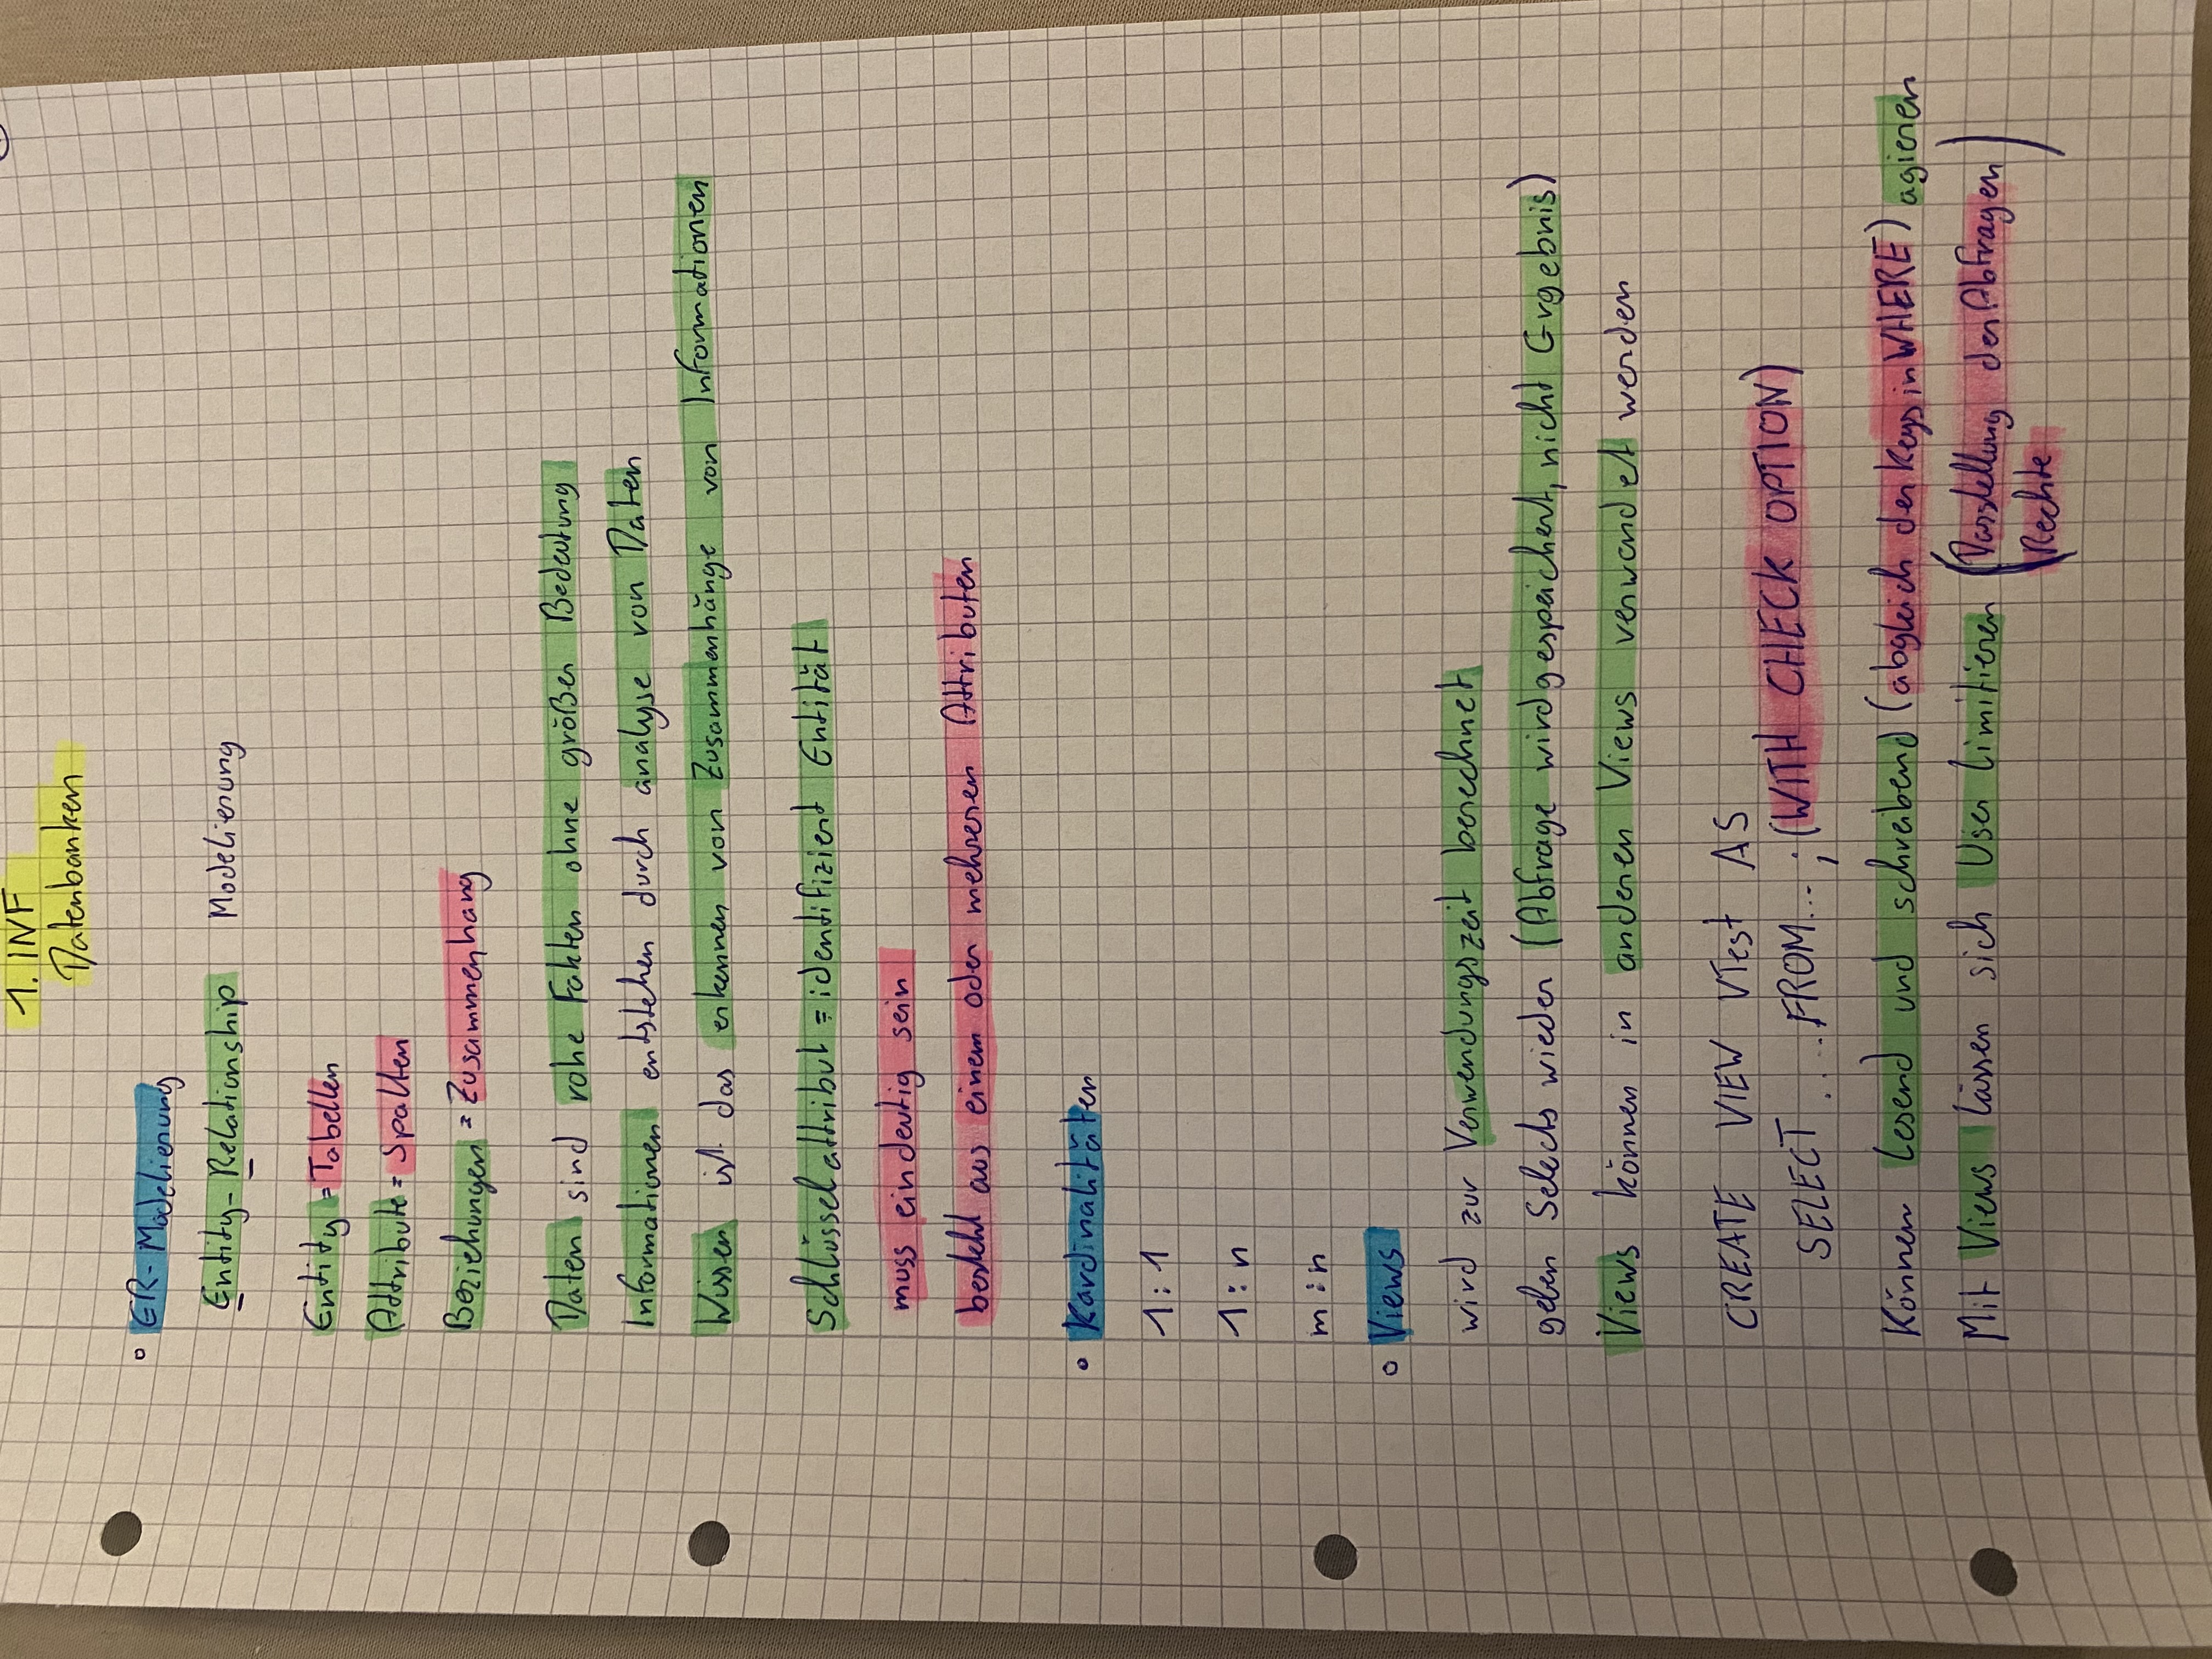 1. INF
Datenbanken
ER-Modelierung
Entity-Relationship Modelierung
Entity = Tabellen
Attribute = Spalten
Beziehungen = Zusammenhang
Daten sind rohe Fakten ohne größer Bedeutung
Informationen entstehen durch analyse von Daten
Wissen ist das erkennen von Zusammenhänge von Informationen
Schlüsselattribut = identifiziert Entität
muss eindeutig sein
besteht aus einem oder mehreren Attributen
Kardinalitäten
1:1
1:n
m:n
Views
wird zur Verwendungszeit berechnet
geben Selects wieder (Abfrage wird gespeichert, nicht Ergebnis)
Views können in anderen Views verwendet werden
CREATE VIEW VTest AS
SELECT .... FROM... ; (WITH CHECK OPTION)
Können lesend und schreibend (abgleich der Keys in WHERE) agieren
Mit Views lassen sich User limitieren (Darstellung der Abfragen
Rechte)